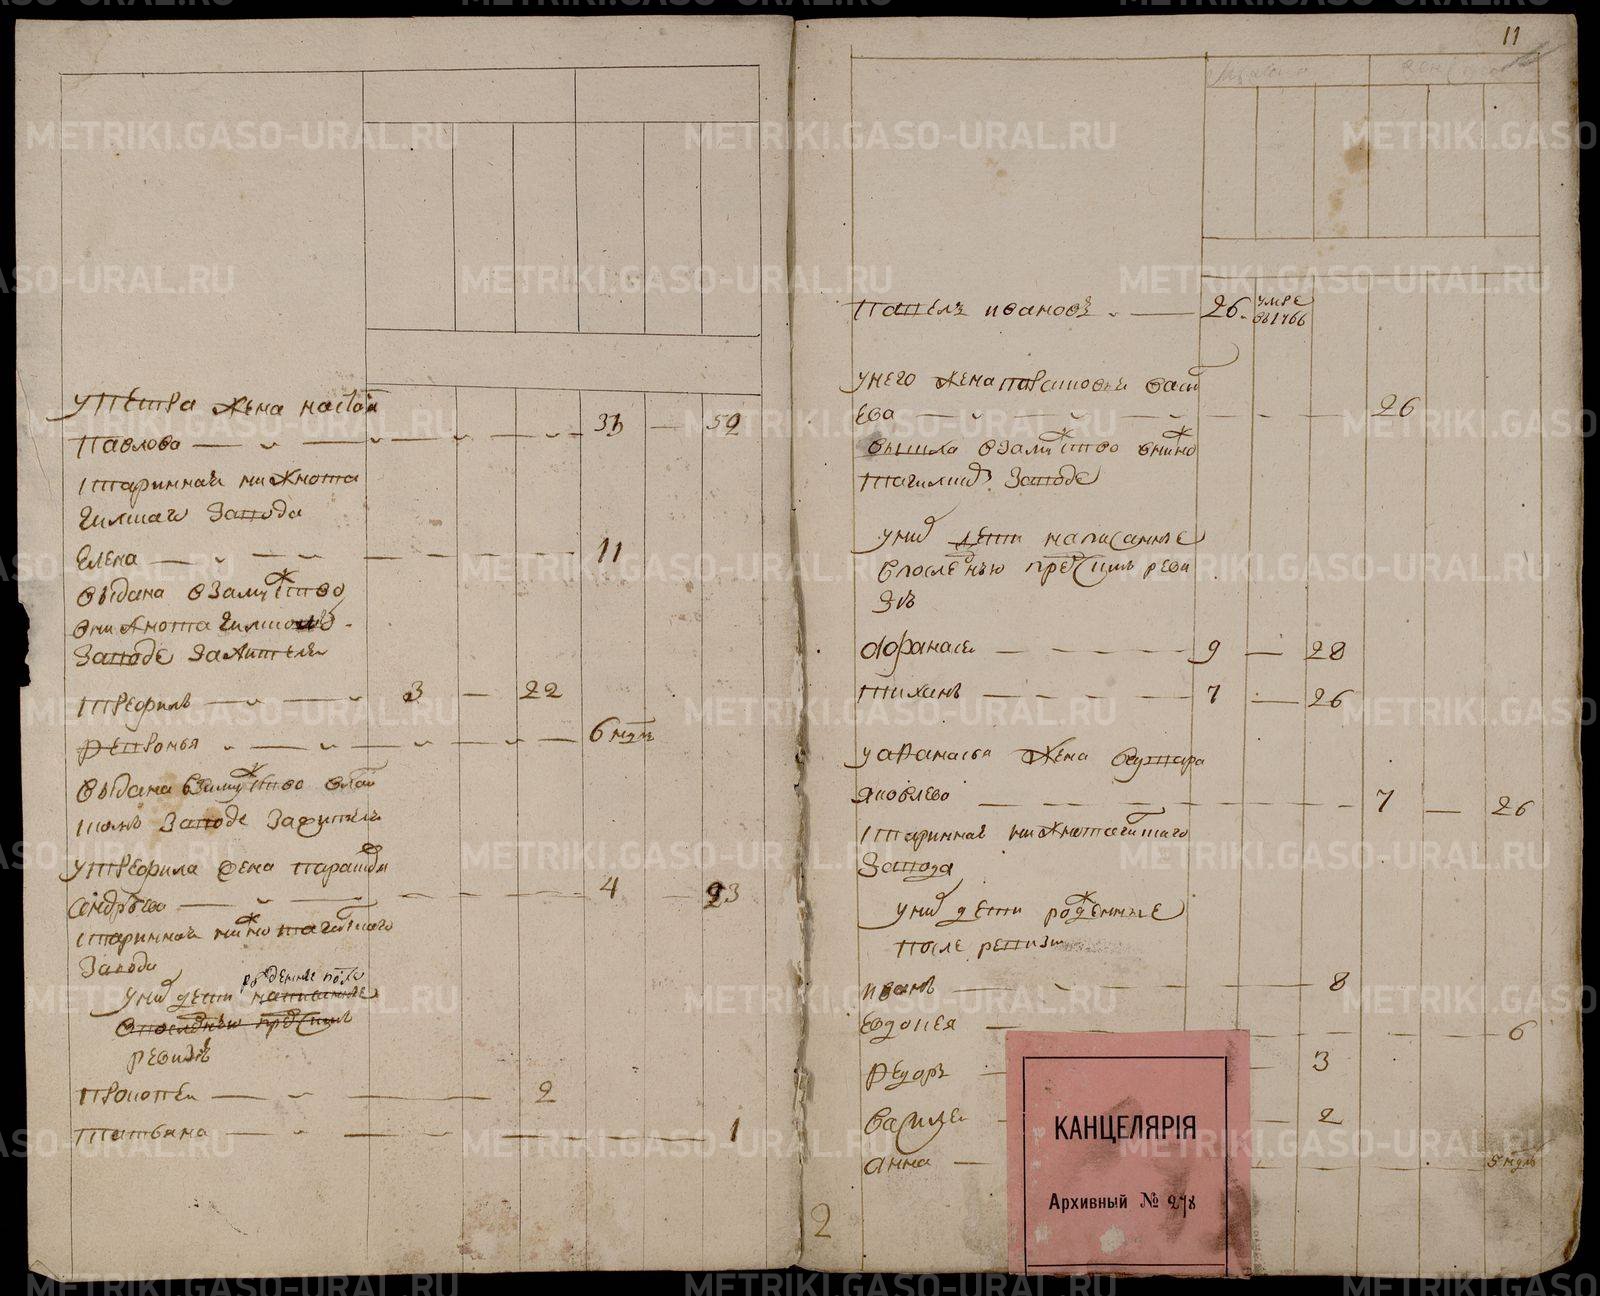 у петра жена настас
павлова — 33 — 52
старинная нижнота
гилскаго завода
елена — 11
выдана взамужство
внижнотагилском
заводе зажителя
трефилъ — 3 — 22
февронья — 6 нед
выдана взамужство втом
заводе зажителя
у трефила жена парасковья
андреева — 4 — 23
старинная нижнотагилского
завода
унихъ дети рожденные после
ревизiи
прокопей — 2
татьяна — 1
11
мужеска женска
павелъ ивановъ — 26 умре в 1766
унего жена парасковья васил
ева — 26
вышла взамужство внижно
тагилскомъ заводе
унихъ дети написанные
впоследнюю пред симъ реви
зiю
афанасей — 9 — 28
тихонъ — 7 — 26
уафанасья жена
яковлева — 7 — 26
старинная нижнотагилскаго
завода
унихъ дети рожденные
после ревизiи
иванъ — 8
евдокея — 6
федоръ — 3
василей — 2
анна — 5 недль
КАНЦЕЛЯРІЯ
Архивный № 278
2
METRIKI.GASO-URAL.RU